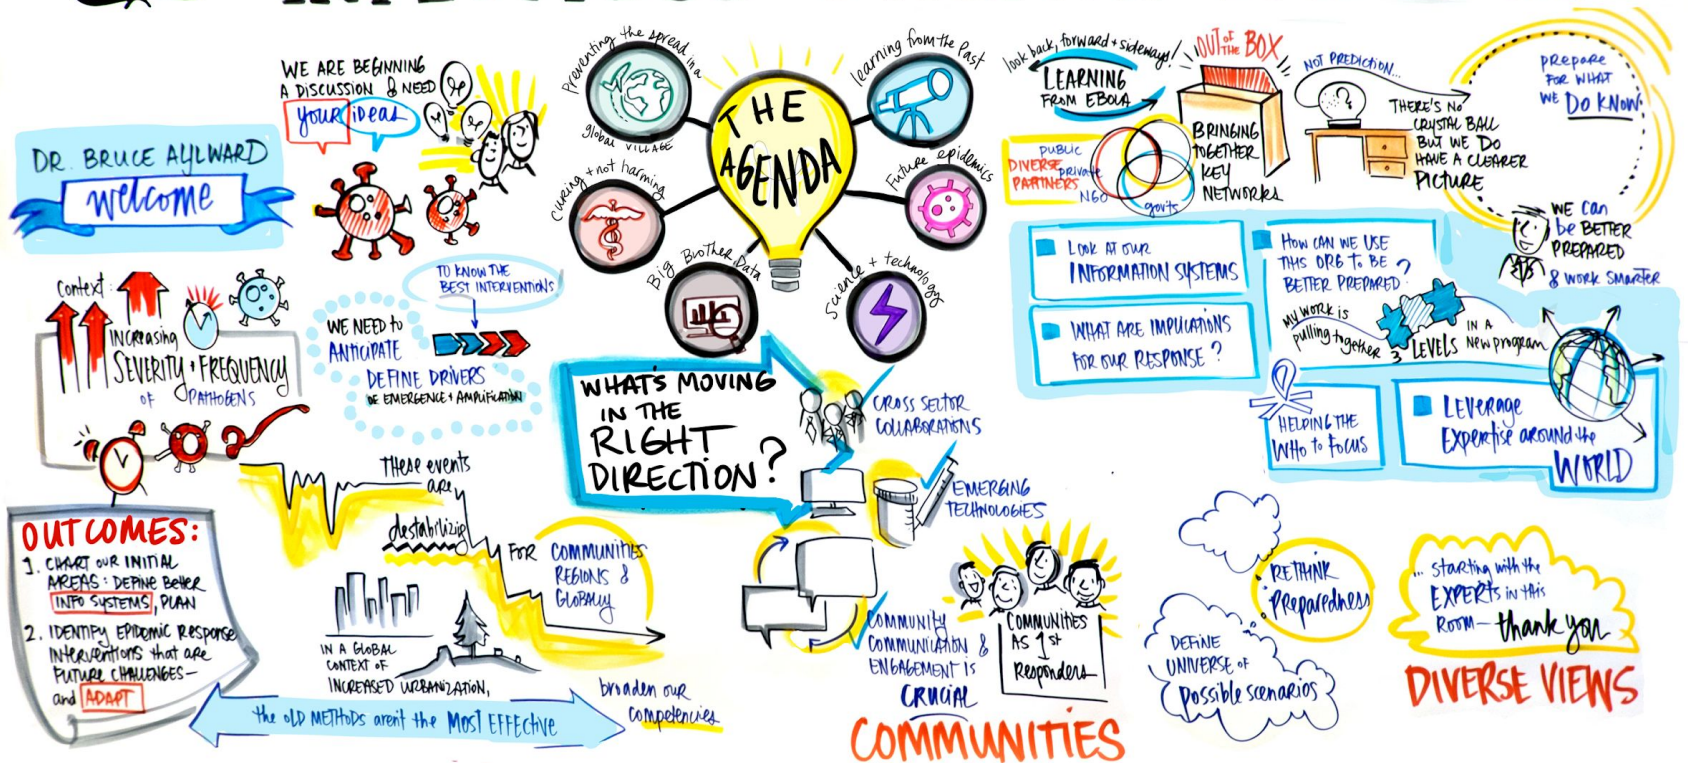 DR. BRUCE AYLWARD
welcome
WE ARE BEGINNING
A DISCUSSION & NEED
your ideas
Context:
INCREASING
SEVERITY + FREQUENCY
OF PATHOGENS
TO KNOW THE
BEST INTERVENTIONS
WE NEED to
ANTICIPATE
DEFINE DRIVERS
OF EMERGENCE + AMPLIFICATION
OUTCOMES:
1. CHART OUR INITIAL
AREAS: DEFINE BETTER
INFO SYSTEMS, PLAN
2. IDENTIFY EPIDEMIC RESPONSE
INTERVENTIONS that are
FUTURE CHALLENGES—
and ADAPT
THESE events
are
destabilizing
FOR COMMUNITIES
REGIONS &
GLOBALLY
IN A GLOBAL
CONTEXT OF
INCREASED URBANIZATION,
the OLD METHODS aren't the MOST EFFECTIVE
broaden our
competencies
THE
AGENDA
Preventing the spread in a
global VILLAGE
curing + not harming
Big Brother Data
Science + technology
Future epidemics
learning from the Past
WHAT'S MOVING
IN THE
RIGHT
DIRECTION?
CROSS SECTOR
COLLABORATIONS
EMERGING
TECHNOLOGIES
COMMUNITY
COMMUNICATION &
ENGAGEMENT IS
CRUCIAL
COMMUNITIES
AS 1st
Responders
COMMUNITIES
look back, forward + sideways!
LEARNING
FROM EBOLA
PUBLIC
DIVERSE private
PARTNERS
NGO
gov'ts
OUT of the BOX
BRINGING
TOGETHER
KEY
NETWORKS
NOT PREDICTION...
?
THERE'S NO
CRYSTAL BALL
BUT WE DO
HAVE A CLEARER
PICTURE
prepare
FOR WHAT
WE DO KNOW
WE can
be BETTER
PREPARED
& WORK SMARTER
LOOK AT OUR
INFORMATION SYSTEMS
WHAT ARE IMPLICATIONS
FOR OUR RESPONSE?
HOW CAN WE USE
THIS ORG TO BE
BETTER PREPARED?
MY WORK is
pulling together
3 LEVELS
IN A
New program
HELPING THE
WHO to FOCUS
LEVERAGE
EXPERTISE around the
WORLD
RETHINK
Preparedness
DEFINE
UNIVERSE OF
possible scenarios
... starting with the
EXPERTS in this
ROOM— thank you
DIVERSE VIEWS